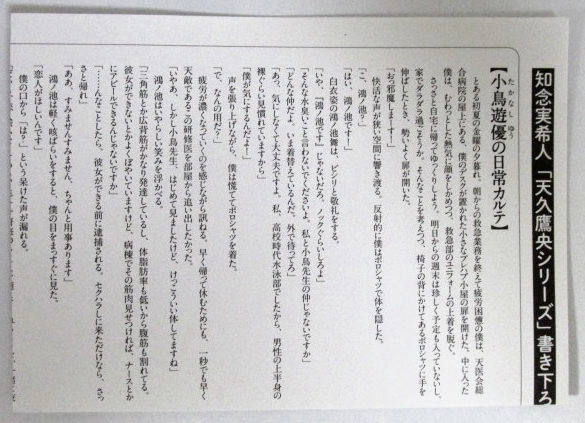 知念実希人「天久鷹央シリーズ」書き下ろ
【小鳥遊優の日常カルテ】
たかなし ゆう
とある初夏の金曜の夕暮れ。朝からの救急業務を終えて疲労困憊の僕は、天医会総
合病院の屋上にある、僕のデスクが置かれた小さなプレハブ小屋の扉を開けた。中に入った
僕は、むわっとした熱気に顔をしかめつつ、救急部のユニフォームの上着を脱ぐ。
さっさと自宅に帰ってゆっくりしよう。明日からの週末は珍しく予定も入っていないし、
家でダラダラ過ごそうか。そんなことを考えつつ、椅子の背にかけてあるポロシャツに手を
伸ばしたとき、勢いよく扉が開いた。
「おっ邪魔しまーす！」
快活な声が狭い空間に響き渡る。反射的に僕はポロシャツで体を隠した。
「こ、鴻ノ池？」
「はい、鴻ノ池です！」
白衣姿の鴻ノ池舞は、ビシリと敬礼をする。
「いや、『鴻ノ池です』じゃないだろ。ノックぐらいしろよ」
「そんな水臭いこと言わないでくださいよ。私と小鳥先生の仲じゃないですか」
「どんな仲だよ。いま着替えているんだ、外で待ってろ」
「あっ、気にしなくて大丈夫ですよ。私、高校時代水泳部でしたから、男性の上半身の
裸ぐらい見慣れていますから」
「僕が気にするんだよ！」
声を張り上げながら、僕は慌ててポロシャツを着た。
「で、なんの用だ？」
疲労が濃くなっていくのを感じながら訊ねる。早く帰って休むためにも、一秒でも早く
天敵であるこの研修医を部屋から追い出したかった。
「いやあ、しかし小鳥先生。はじめて見ましたけど、けっこういい体してますね」
鴻ノ池はいやらしい笑みを浮かべる。
「三角筋とか広背筋がかなり発達しているし、体脂肪率も低いから腹筋も割れてる。
彼女ができないとかよくぼやいていますけど、病棟でその筋肉見せつければ、ナースとか
にアピールできるんじゃないですか」
「……んなことしたら、彼女ができる前に逮捕される。セクハラしに来ただけなら、さっ
さと帰れ」
「ああ、すみませんすみません。ちゃんと用事あります」
鴻ノ池は軽く咳ばらいをすると、僕の目をまっすぐに見た。
「恋人がほしいんです」
僕の口から「は？」という呆けた声が漏れる。